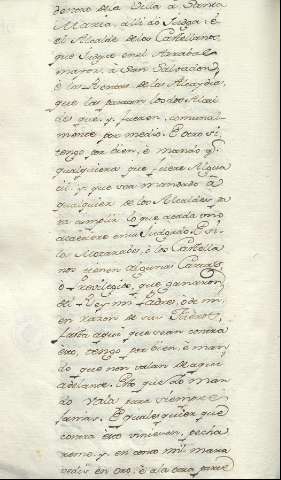 dentro de la Villa à Santa
Maria, alli do Judga: è
el Alcalde de los Castellanos,
que Judgue en el Arrabal
mayor, à San Salvador;
è las Rentas de las Alcaydias,
que las partan los dos Alcal
des que y fueren, comunal-
mente por medio. E otro si
tengo por bien, è mando q.
qualquiera que fuere Algua
cil y que sea mandado à
qualquier de los Alcaldes pa
ra cumplir lo que cada uno
acaeciere en su Judgado. E si
los Mozarabes, ò los Castella
nos tienen algunas Cartas,
ò Privilegios, que ganaron
del Rey mi Padre, ò de mi
en razon de sus Fueros
fasta aqui que sean contra
esto, tengo por bien, è man
do que non valan de aqui
adelante. Esto que do man
do vala para siempre
jamas. E qualesquier que
contra esto viniesen, pechar
me y en coto mil marave
dis en oro: è à la otra parte